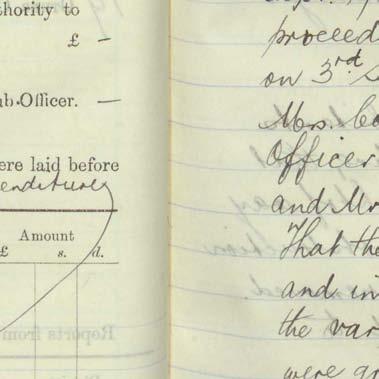 thority to
£ —
ub-Officer. —
ere laid before
enditures
Amount
£ s. d.
proceed
on 3rd S
Mrs. Co
Officer
and Mr
That the
and in
the var
were gr